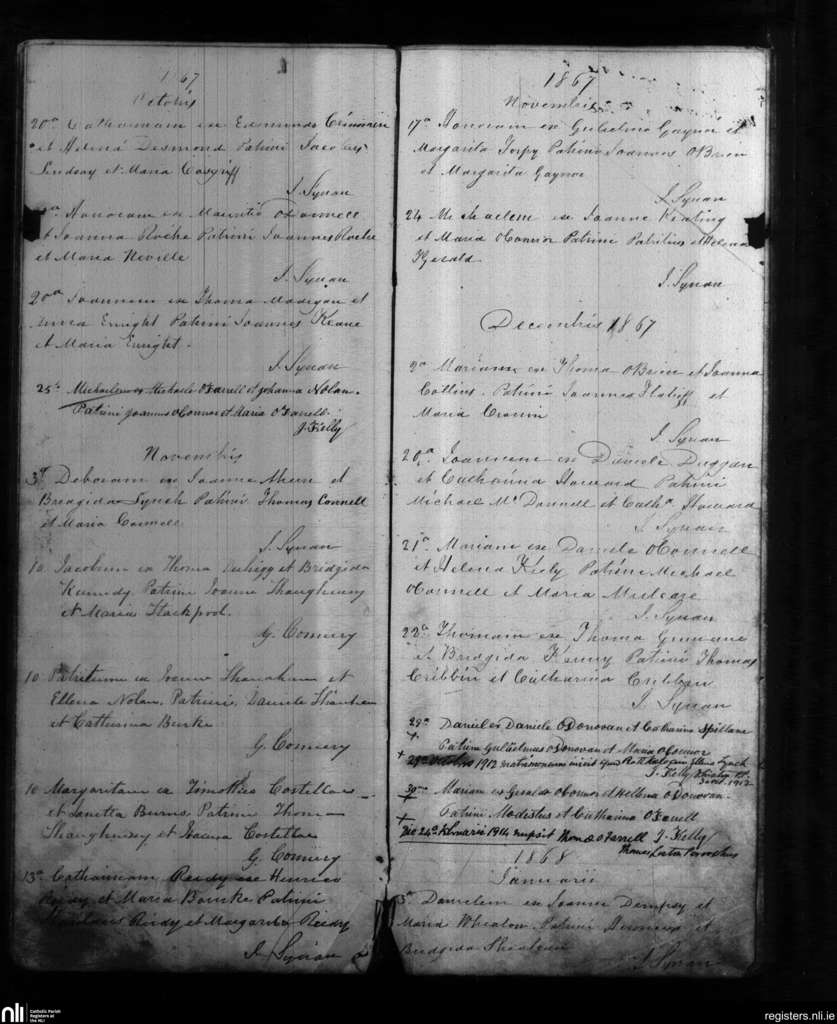 1867
Octobris
20a Catherinam ex Edmundo
et Helena Desmond Patrini Jacobus
Lindsay et Maria Cosgriff
J. Synan
Honoram ex Mauritio O'Donnell
et Joanna Roche Patrini Joannes Roche
et Maria Neville
J. Synan
20a Joannem ex Thoma Madigan et
Anna Enright Patrini Joannes Keane
et Maria Enright.
J. Synan
25a Michaelem ex Michaele O'Farrell et Johanna Nolan.
Patrini Joannes O'Connor et Maria O'Farrell.
J. Kelly
Novembris
3a Deboram ex Joanne et
Bredgida Lynch Patrini Thomas Connell
et Maria Connell
J. Synan
10 Jacobum ex Thoma et Bridgida
Kennedy Patrini Joanne Shaughnessy
et Maria Stackpool.
G. Connery
10 Patritium ex Joanne Shanahan et
Ellena Nolan. Patrini, Daniele
et Catherina Burke
G. Connery
10 Margaritam ex Timotheo Costelloe
et Honetta Burns Patrini Thomas
Shaughnessy et Joanna Costelloe
G. Connery
13a Catherinam Reidy ex Henrico
Reidy et Maria Bourke Patrini
Reidy et Margarita Reidy
J. Synan
1867
Novembris
17a Honoram ex Gulielmo Gaynor et
Margarita Torpy Patrini Joannes O'Brien
et Margarita Gaynor
J. Synan
24 Michaelem ex Joanne Keating
et Maria O'Connor Patrini Patritius et Helena
J. Synan
Decembris 1867
2a Mariam ex Thoma O'Brien et Joanna
Collins. Patrini Joannes et
Maria Cronin
J. Synan
20a Joannem ex Daniele Duggan
et Catharina Howard Patrini
Michael McDonnell et Catha Howard
J. Synan
21a Mariam ex Daniele O'Connell
et Helena Kiely Patrini Michael
O'Connell et Maria Mulcare
J. Synan
22a Thomam ex Thoma
et Bridgida Kenny Patrini Thomas
Cribbin et Catharina Cribbin
J. Synan
29a Daniel ex Daniele O'Donovan et Catharina Spillane
+
Patrini Gulielmus O'Donovan et Maria O'Connor
+ 29a Octobris 1912 matrimonium inivit cum Lynch
J. Kelly
30a Mariam ex Geraldo O'Connor et Hellena O'Donovan.
+
Patrini Modestus et Catharina O'Farrell
+
Die 24a Februarii 1914 nupsit Thomae O'Farrell J. Kelly
Thomas Lixton Parochus
1868
Januarii
5a Danielem ex Joanne Dempsy et
Maria Whealon Patrini et
Bredgida
J. Synan
nli
Catholic Parish
Registers at
the NLI
registers.nli.ie